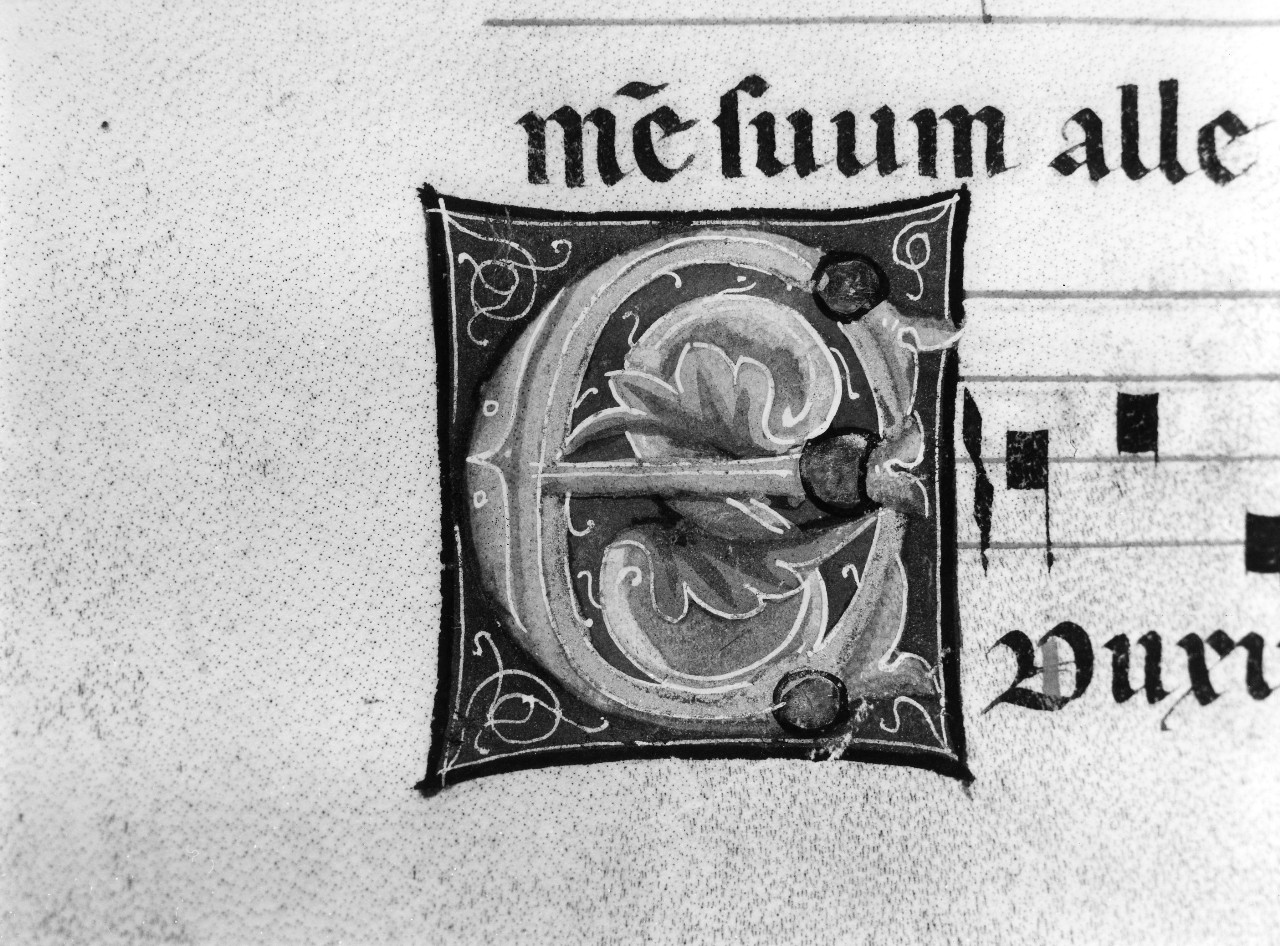 mẽ suum alle
E
Duxi